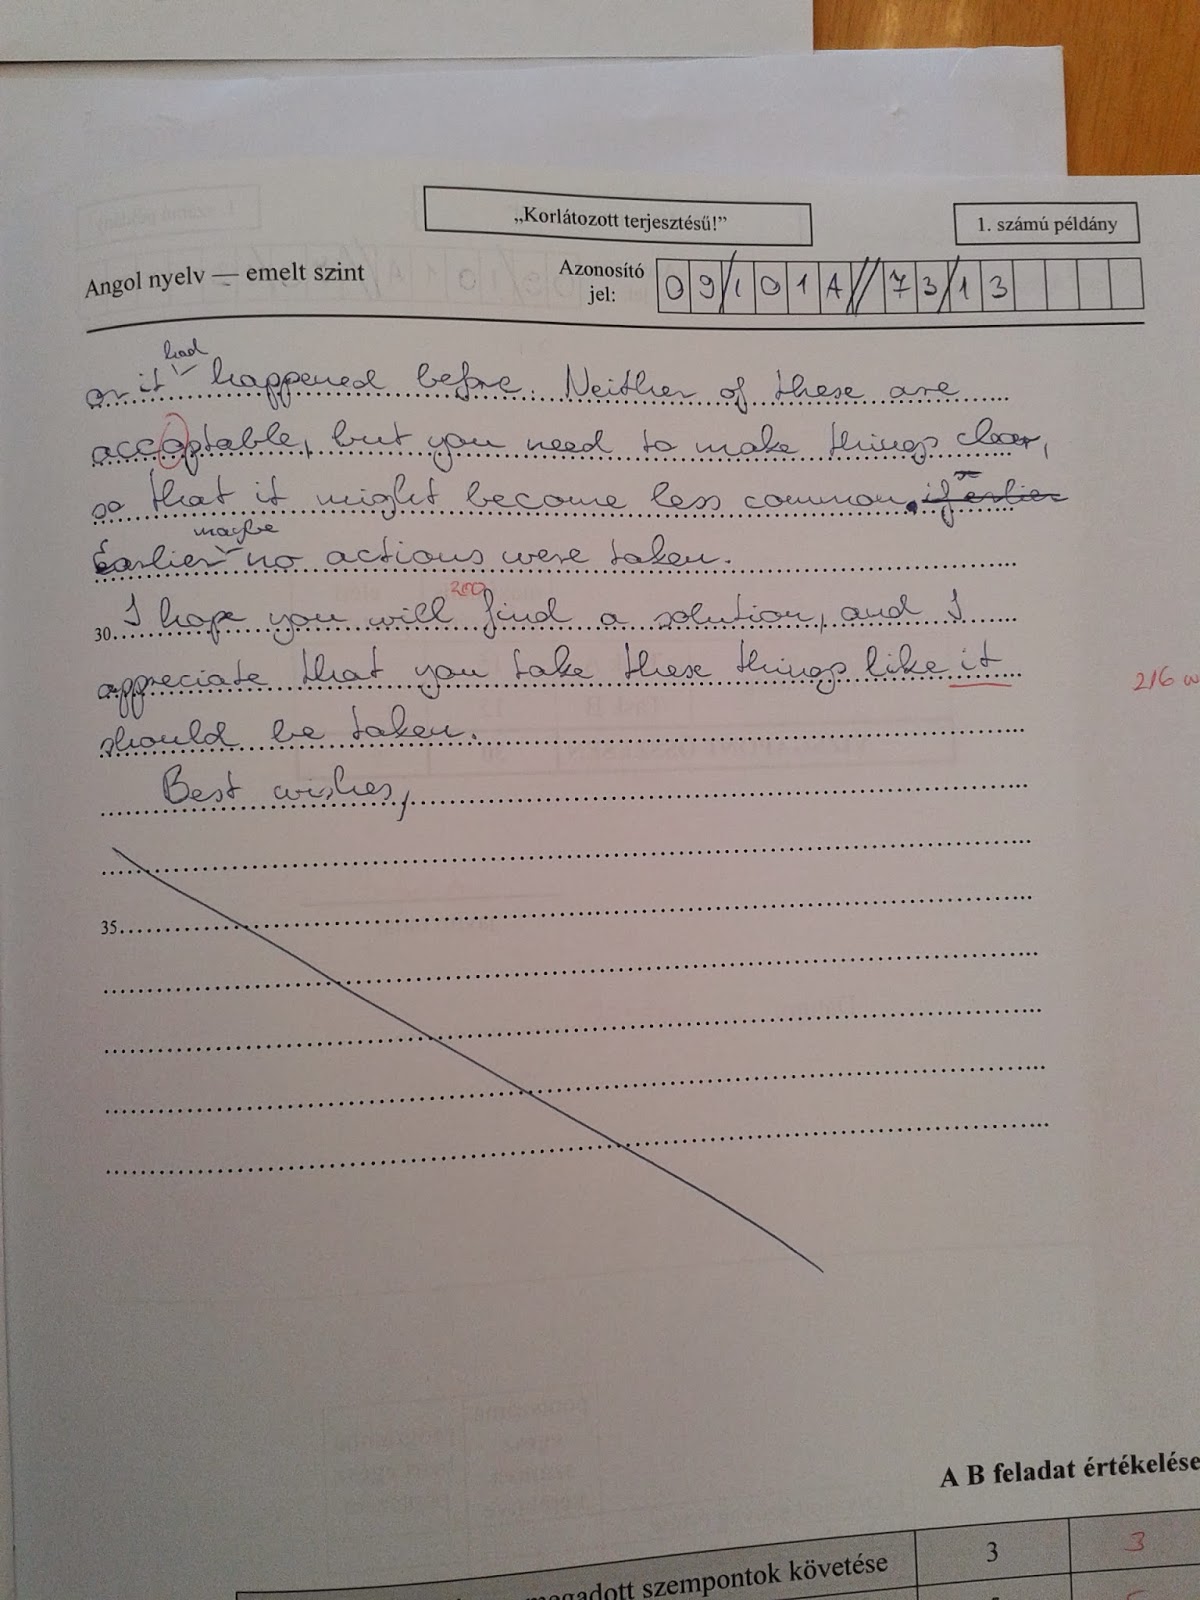 „Korlátozott terjesztésű!”
1. számú példány
Angol nyelv — emelt szint
Azonosító jel: 09/101A//73/13
had
or it happened before. Neither of these are
accoptable, but you need to make things clear,
so that it might become less common. if earlier
maybe
Earlier no actions were taken.
200
30. I hope you will find a solution, and I
appreciate that you take these things like it
216 w
should be taken.
Best wishes,
35
A B feladat értékelése
megadott szempontok követése 3 3